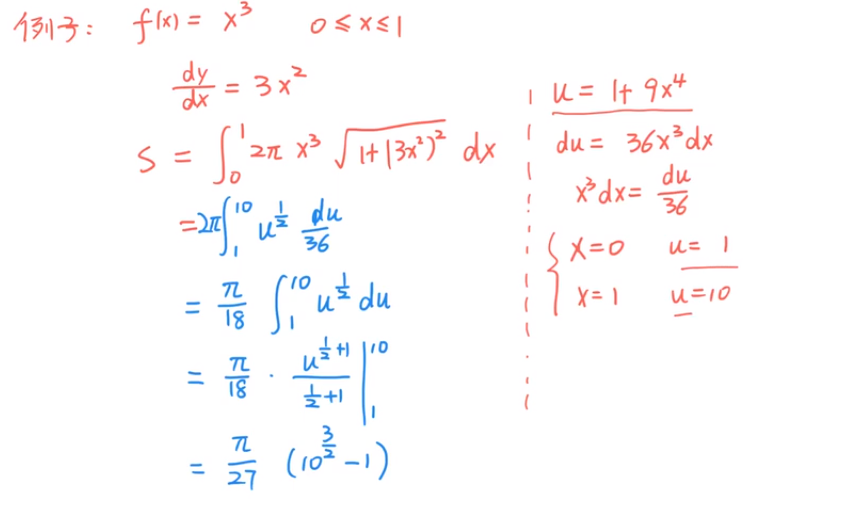 例子: f(x) = x³ 0 ≤ x ≤ 1
dy/dx = 3x²
S = ∫₀¹ 2π x³ √(1+(3x²)²) dx
= 2π ∫₁¹⁰ u^(1/2) du/36
= π/18 ∫₁¹⁰ u^(1/2) du
= π/18 · u^(1/2+1)/(1/2+1) |₁¹⁰
= π/27 (10^(3/2) − 1)
u = 1+ 9x⁴
du = 36x³dx
x³dx = du/36
{ x=0 u= 1
x=1 u=10